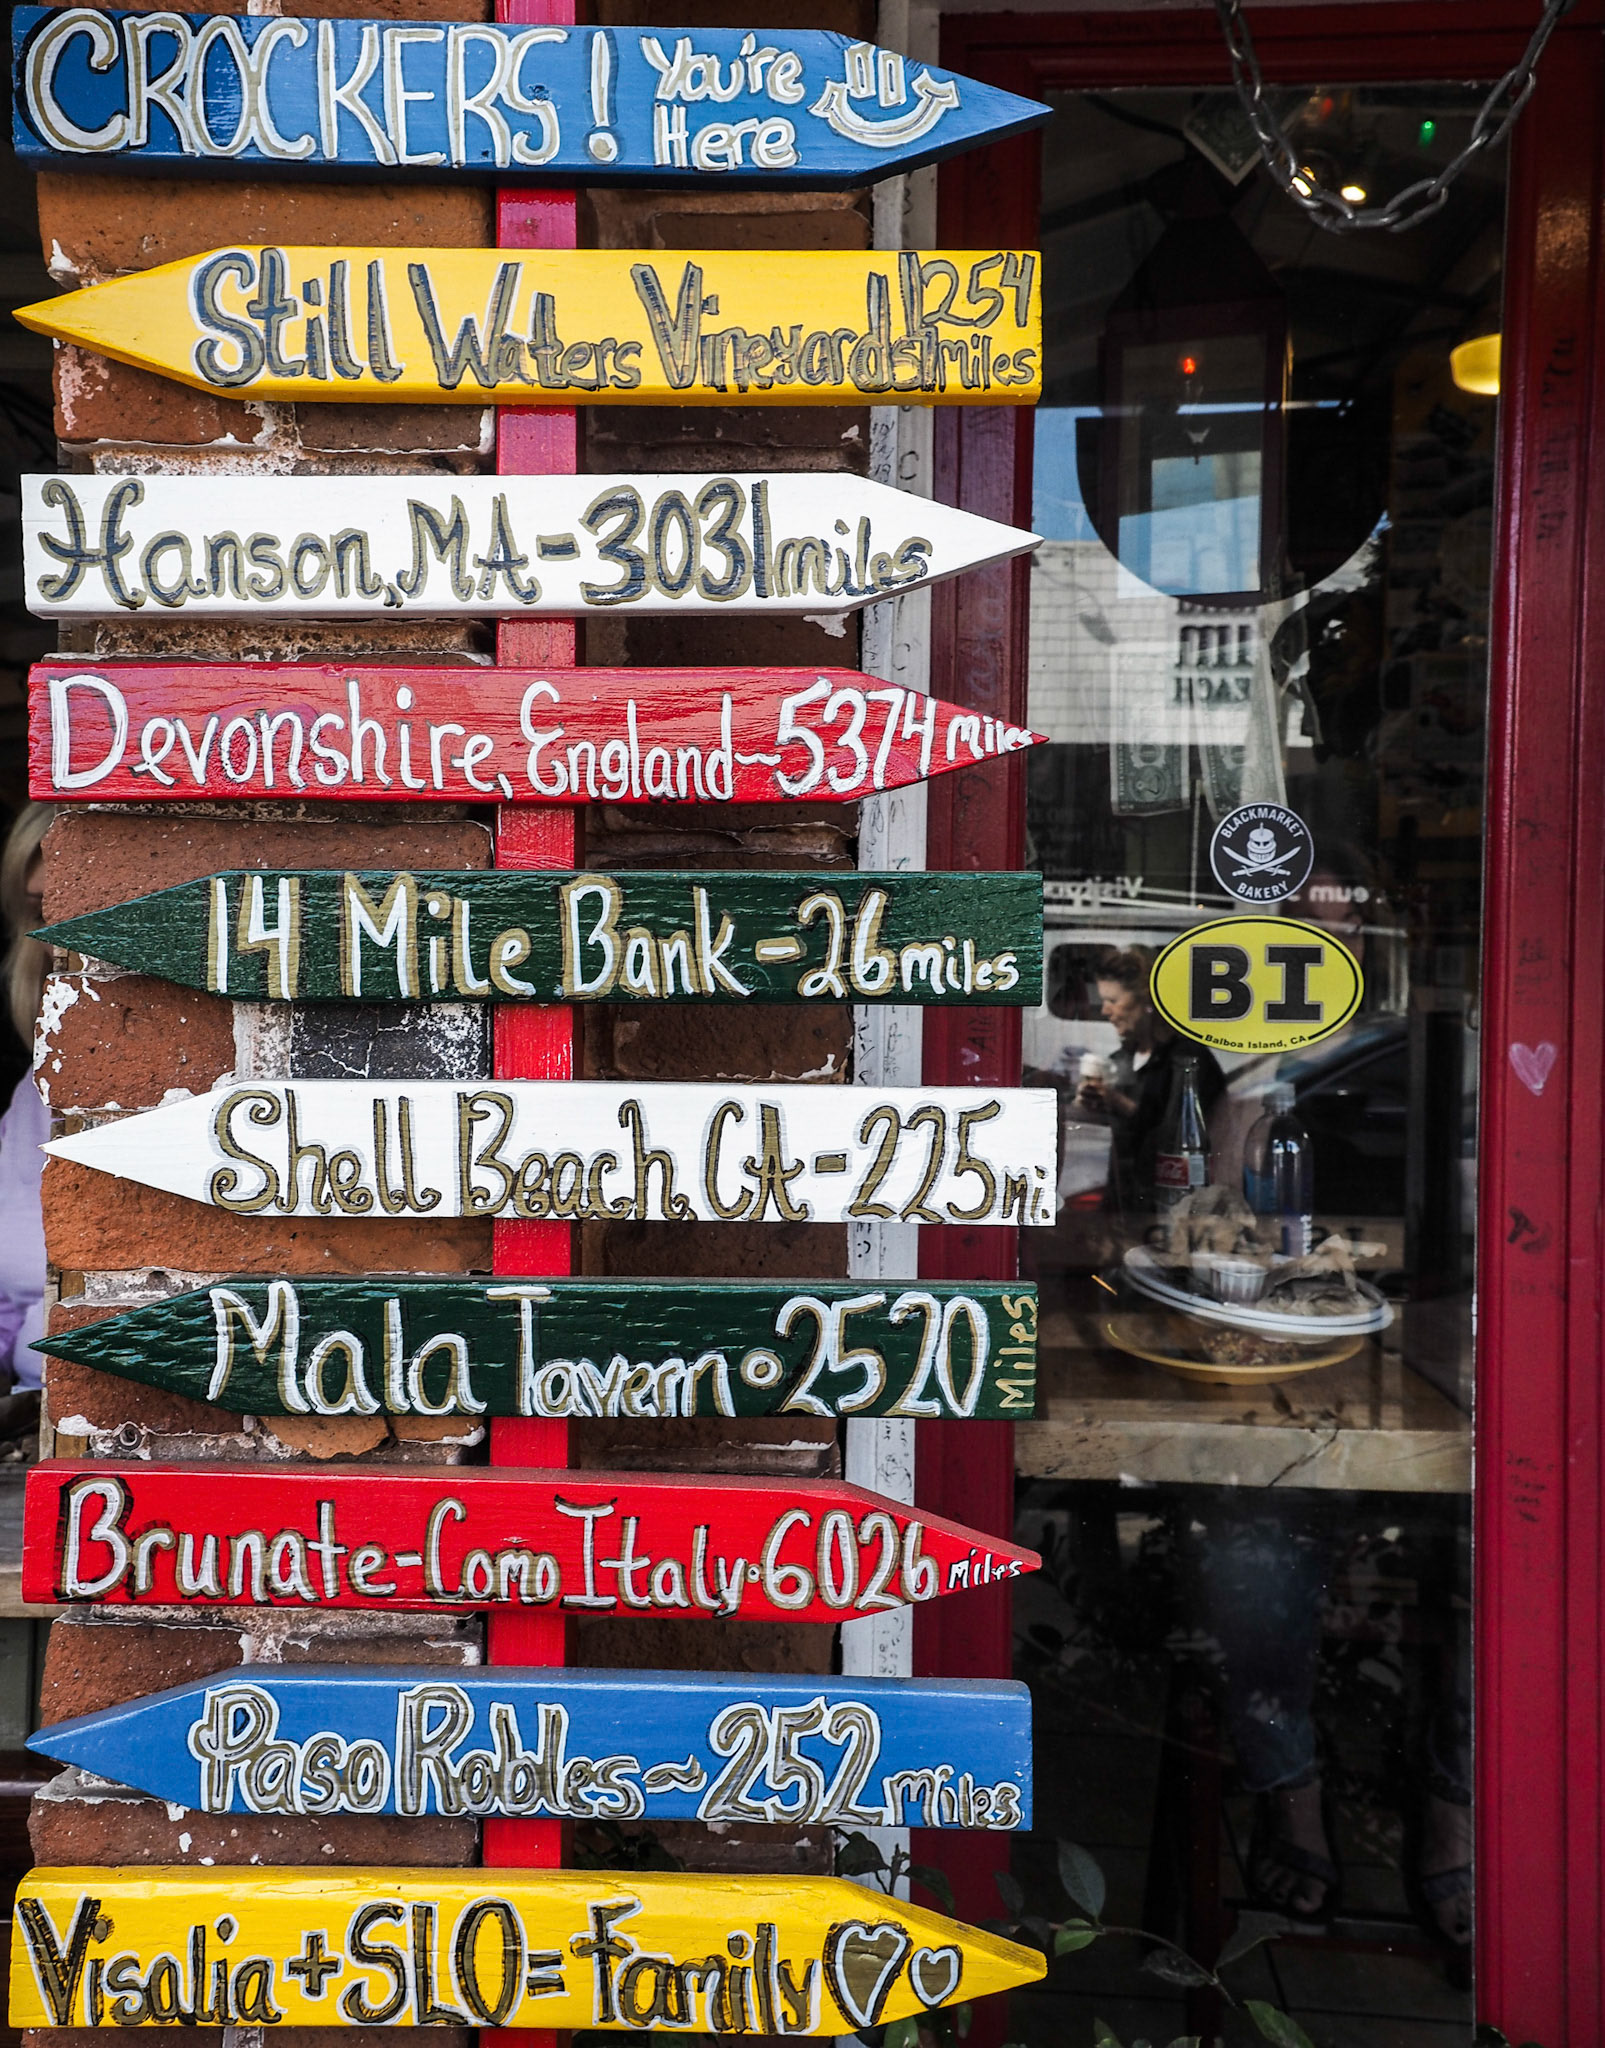 CROCKERS! You're Here
Still Waters Vineyards 254 miles
Hanson, MA-3031 miles
Devonshire, England~5374 miles
14 Mile Bank-26 miles
Shell Beach, CA-225 mi.
Mala Tavern·2520 Miles
Brunate-Como Italy·6026 miles
Paso Robles~252 miles
Visalia+SLO=Family
BLACKMARKET
BAKERY
BI
Balboa Island, CA
ISLAND